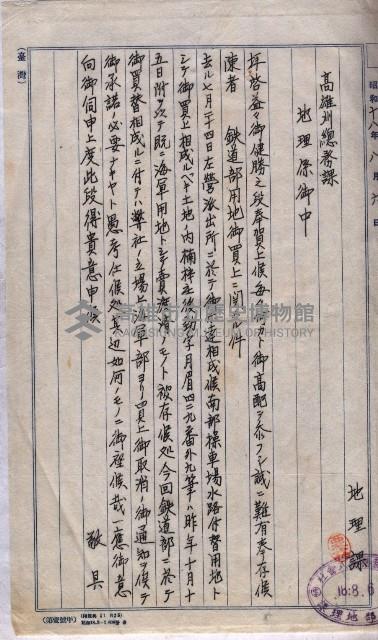 昭和十八年八月六日
高雄州總務課
地理係御中
地理課
拝啓益々御健勝之段奉賀上候毎々何カト御高配ヲ忝フシ誠ニ難有奉存候
陳者 鉄道部用地御買上ニ関スル件
去ル七月二十四日左營派出所ニ於テ御申達相成候南部操車場水路付替用地ト
シテ御買上相成ルベキ土地ノ内楠梓庄後勁字月眉四二九番外九筆ハ昨年十月十
五日附ヲ以テ既ニ海軍用地トシテ賣渡済ノモノト被存候処今回鉄道部ニ於テ
御買替相成ルニ付テハ弊社ノ立場上海軍部ヨリ買上御取消ノ御通知ヲ俟テ
御承諾ノ必要ナキヤト愚考仕候処其辺如何ノモノニ御座候哉一應御意
向御伺申上度此段得貴意申候
敬具
高雄市立歷史博物館
KAOHSIUNG MUSEUM OF HISTORY
(臺灣)
18.8.6
(第壹號甲)